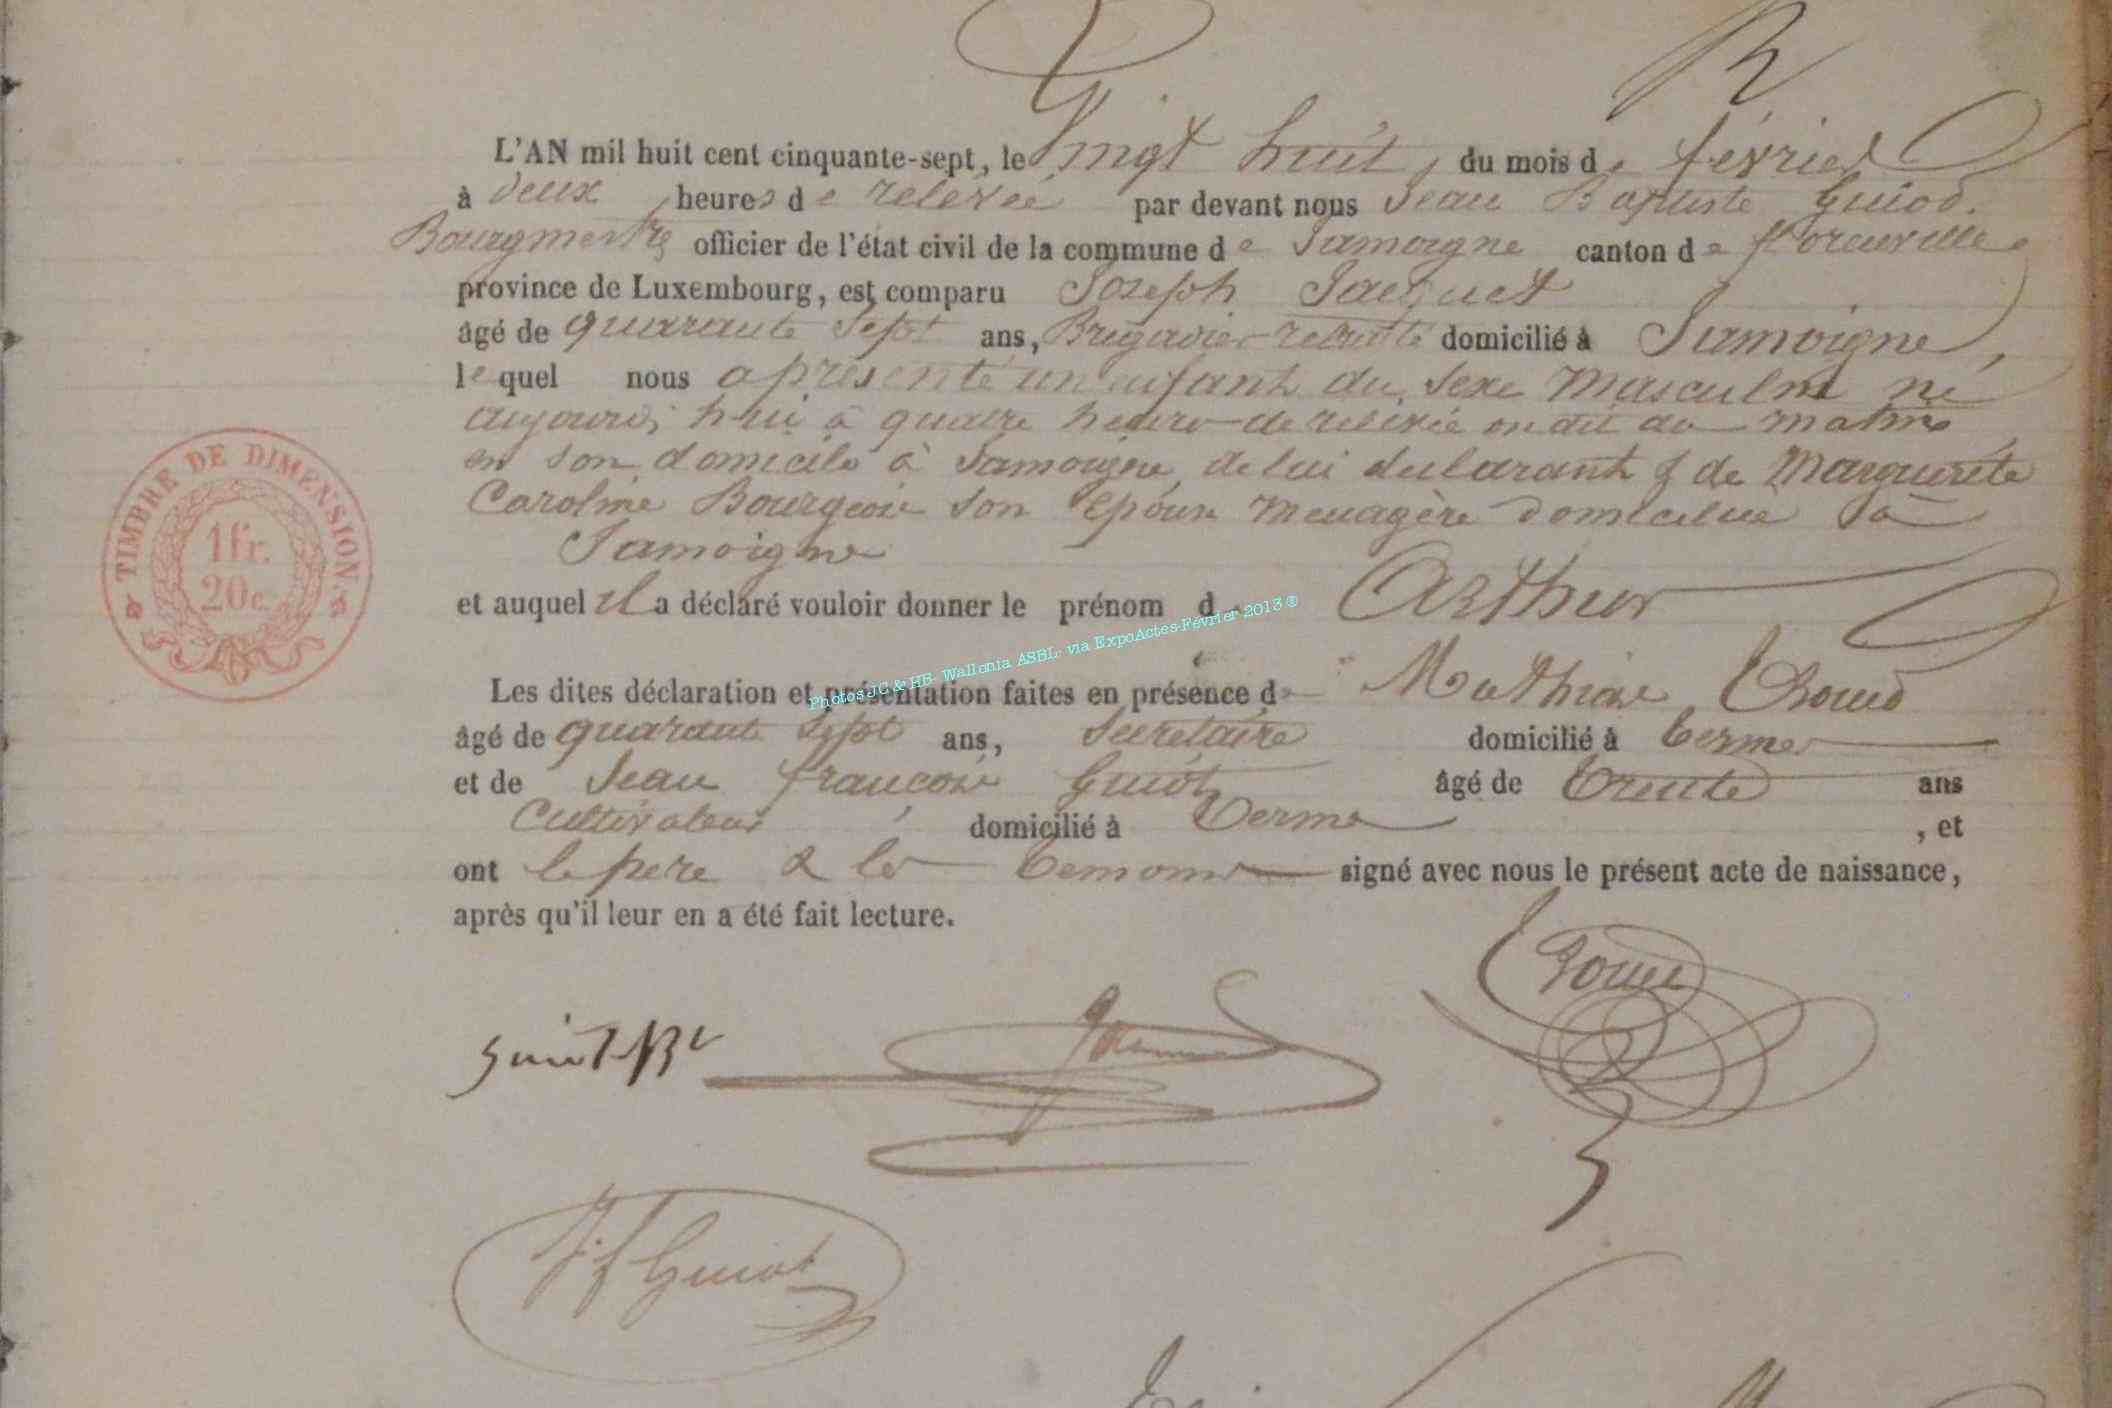 L'AN mil huit cent cinquante-sept, le Vingt huit, du mois de février
à deux heures de relevée par devant nous Jean Baptiste Guiod.
Bourgmestre officier de l'état civil de la commune de Jamoigne canton de florenville
province de Luxembourg, est comparu Joseph Jacquet
âgé de quarante Sept ans, Brigadier retraité domicilié à Jamoigne,
lequel nous a présenté un enfant du Sexe Masculin né
aujourd'hui à quatre heures de relevée on dit du matin
en son domicile à Jamoigne, de lui declarant & de Marguerite
Caroline Bourgeois son Epouse Menagère domiciliée à
Jamoigne
et auquel il a déclaré vouloir donner le prénom d Arthur
Photos JC & HB- Wallonia ASBL- via ExpoActes-Février 2013 ®
Les dites déclaration et présentation faites en présence de Mathias
âgé de quarante Sept ans, Secrétaire domicilié à termes
et de Jean françois Guiot âgé de trente ans
Cultivateur, domicilié à termes , et
ont le pere & les temoins signé avec nous le présent acte de naissance,
après qu'il leur en a été fait lecture.
TIMBRE DE DIMENSION.
1fr.
20c.
Guiot
J f Guiot